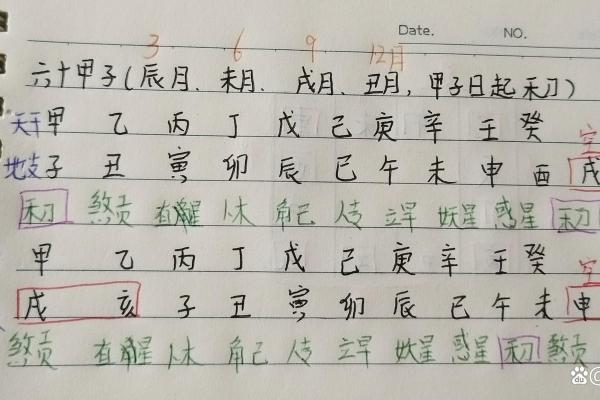 Date. NO.
3 6 9 12月
六十甲子(辰月、未月、戌月、丑月,甲子日起禾刀)
天干甲 乙 丙 丁 戊 己 庚 辛 壬 癸 空
地支子 丑 寅 卯 辰 巳 午 未 申 酉 戌
禾刀 煞贡 直星 人木 角己 人专 立早 妖星 惑星 禾刀
甲 乙 丙 丁 戊 己 庚 辛 壬 癸 空
戌 亥 子 丑 寅 卯 辰 巳 午 未 申
煞贡 直星 人木 角己 人专 立早 妖星 惑星 禾刀 煞贡
Bai du